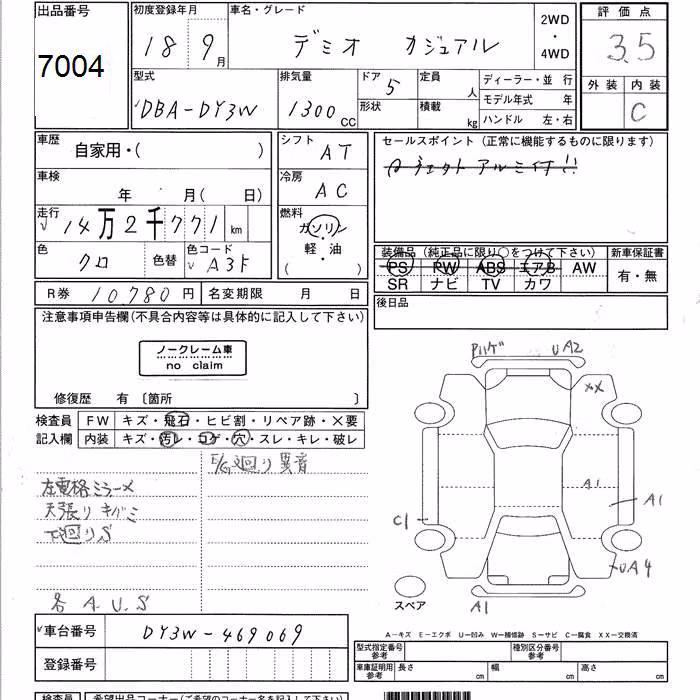 出品番号
7004
初度登録年月
18 9月
車名・グレード
デミオ カジュアル
2WD
・
4WD
評価点
3.5
外装 内装
C
型式
DBA-DY3W
排気量
1300cc
ドア 5
形状
定員 人
積載 kg
ディーラー・並行
モデル年式 年
ハンドル 左・右
車歴
自家用・( )
車検
年 月( 日)
走行
14万2千771 km
色
クロ 色替
色コード
A3F
シフト
AT
冷房
AC
燃料
ガソリン
軽・油
( )
セールスポイント (正常に機能するものに限ります)
アルミ付!!
装備品 (純正品に限り〇をつけて下さい)
PS PW ABS エアB AW
SR ナビ TV カワ
新車保証書
有・無
後日品
R券 10,780円
名変期限 月 日
注意事項申告欄(不具合内容等は具体的に記入して下さい)
ノークレーム車
no claim
修復歴 有 〔箇所 〕
検査員
記入欄
FW キズ・飛石・ヒビ割・リペア跡・×要
内装 キズ・汚レ・コゲ・穴・スレ・キレ・破レ
E/G廻り異音
左電格ミラーメ
天張りキバミ
下廻りS
各 A.U.S
UA2
XX
A1
A1
C1
UA4
A1
スペア
A-キズ E-エクボ U-凹み W-補修跡 S-サビ C-腐食 XX-交換済
車台番号
DY3W-469069
登録番号
型式指定番号
参考
種別区分番号
参考
車庫証明用
参考
長さ cm 幅 cm 高さ cm
検査員
希望出品コーナー(ご希望のコーナー名を記入下さい)